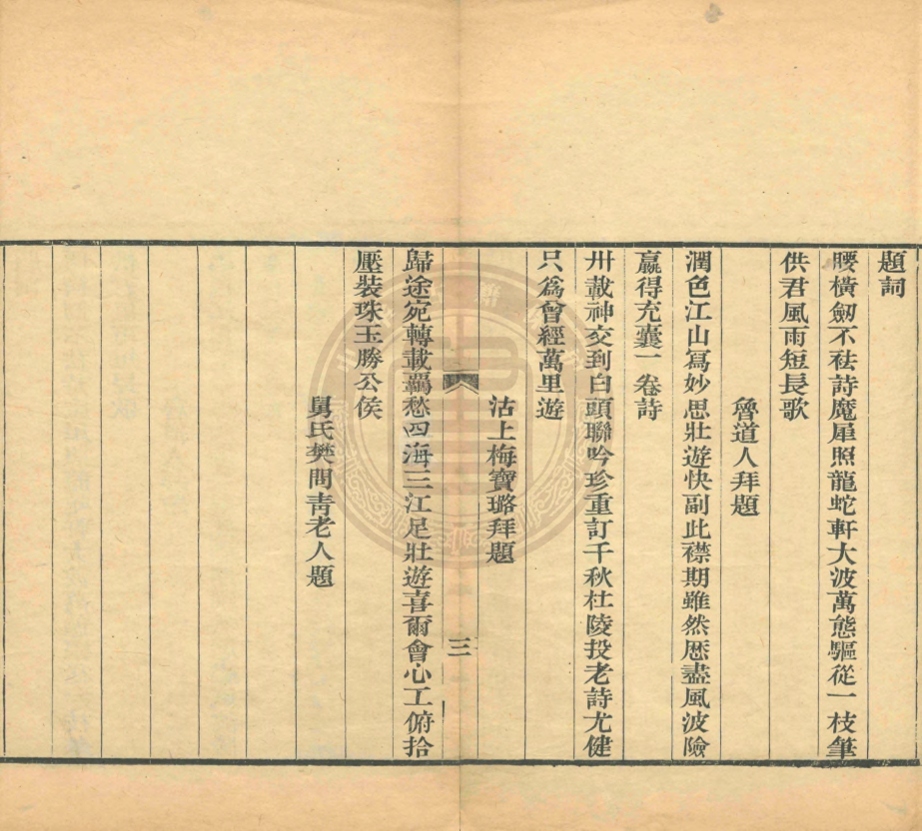 題詞
腰橫劒不祛詩魔犀照龍蛇軒大波萬態驅從一枝筆
供君風雨短長歌
魯道人拜題
潤色江山寫妙思壯遊快副此襟期雖然歷盡風波險
贏得充囊一卷詩
卅載神交到白頭聯吟珍重訂千秋杜陵投老詩尤健
只爲曾經萬里遊
沽上梅寶璐拜題
三
歸途宛轉載羈愁四海三江足壯遊喜爾會心工俯拾
壓裝珠玉勝公侯
舅氏樊問靑老人題